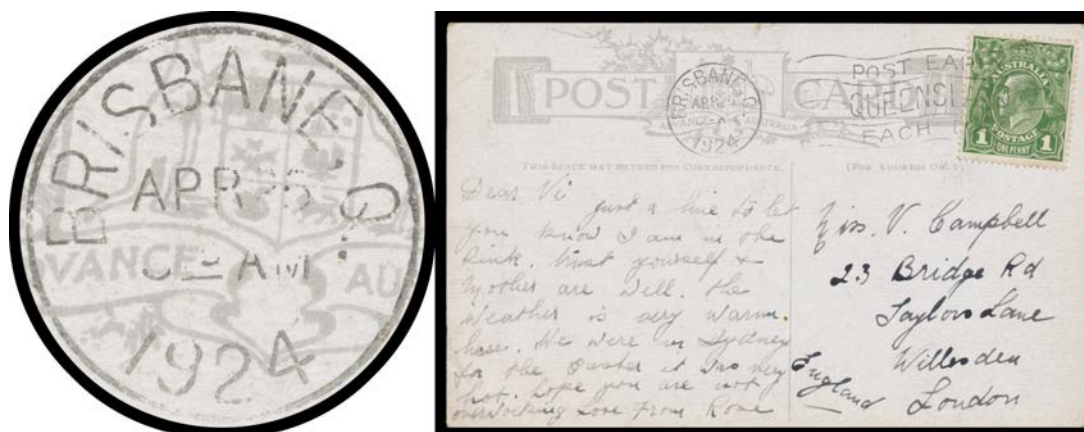 BRISBANE. Q
APR
AM
VANCE AU
1924
POST CARD
BRISBANE. Q
APR
VANCE
1924
POST EAR
QUEENSL
EACH
AUSTRALIA
1 POSTAGE 1
ONE PENNY
THIS SPACE MAY BE USED FOR CORRESPONDENCE.
(FOR ADDRESS ONLY)
Dear Vi
just a line to let
you know I am in the
Pink. trust yourself &
Mother are well. the
weather is very warm.
here. We were in Sydney
for the Easter it was very
hot. hope you are not
overworking Love From Rose
Miss. V. Campbell
23 Bridge Rd
Taylors Lane
Willesden
London
England